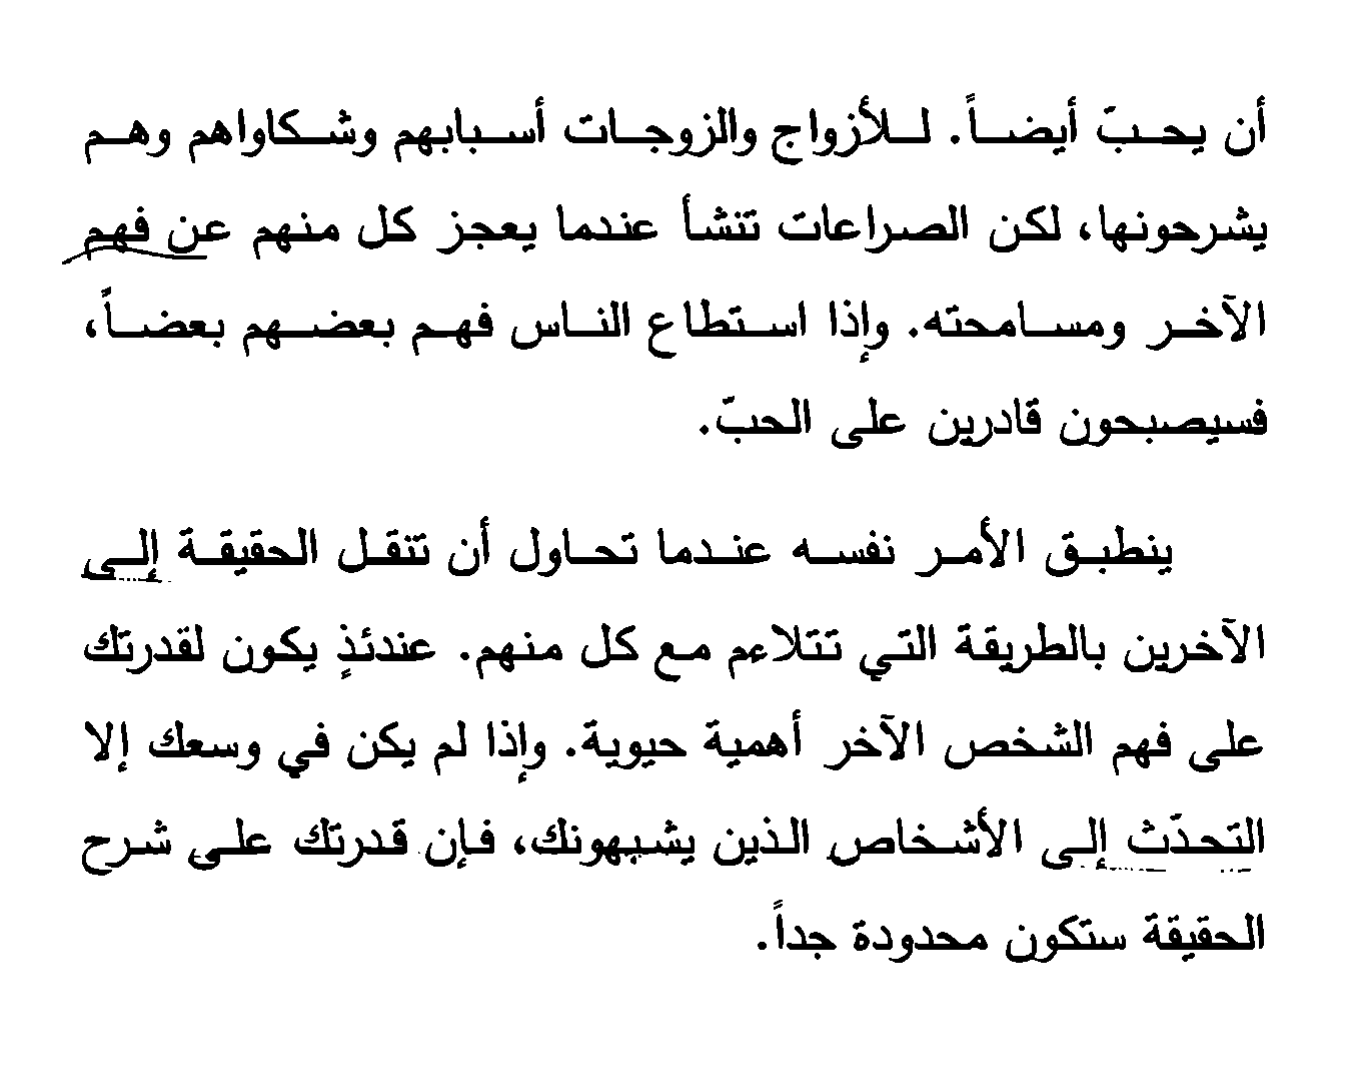 أن يحبّ أيضاً. للأزواج والزوجات أسبابهم وشكاواهم وهم
يشرحونها، لكن الصراعات تنشأ عندما يعجز كل منهم عن فهم
الآخر ومسامحته. وإذا استطاع الناس فهم بعضهم بعضاً،
فسيصبحون قادرين على الحبّ.
ينطبق الأمر نفسه عندما تحاول أن تنقل الحقيقة إلى
الآخرين بالطريقة التي تتلاءم مع كل منهم. عندئذٍ يكون لقدرتك
على فهم الشخص الآخر أهمية حيوية. وإذا لم يكن في وسعك إلا
التحدّث إلى الأشخاص الذين يشبهونك، فإن قدرتك على شرح
الحقيقة ستكون محدودة جداً.